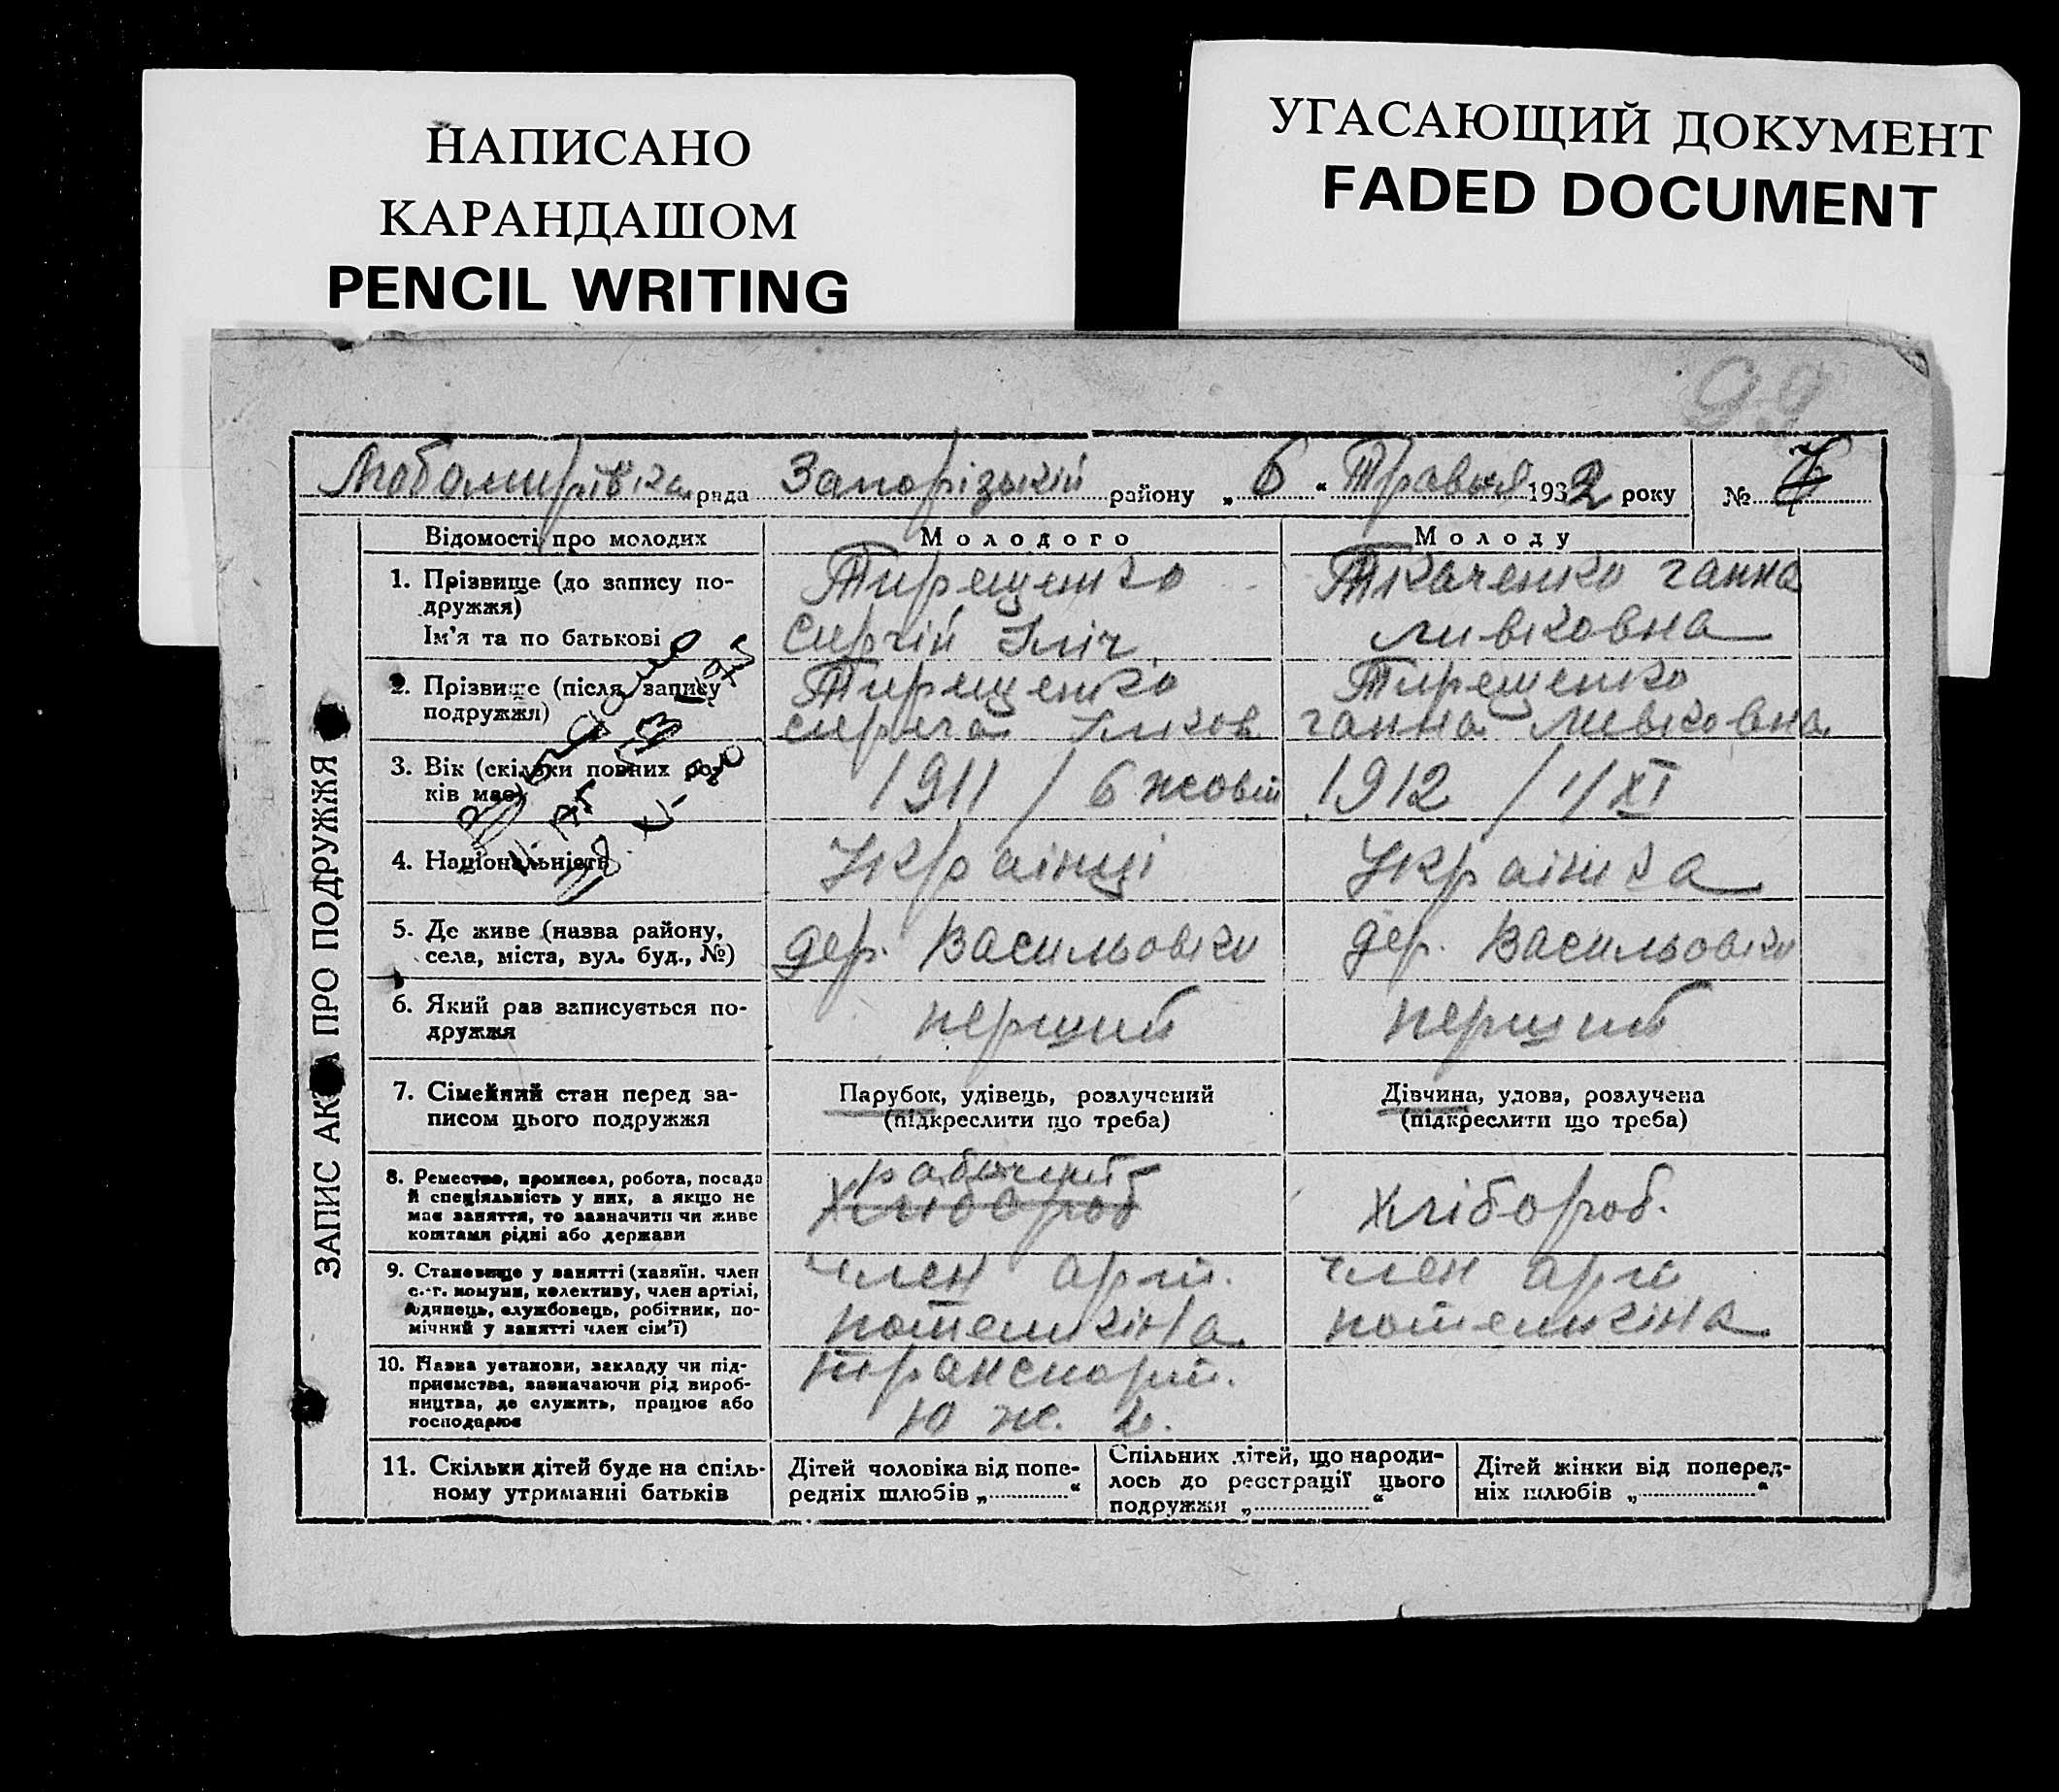 НАПИСАНО
КАРАНДАШОМ
PENCIL WRITING
УГАСАЮЩИЙ ДОКУМЕНТ
FADED DOCUMENT
99
Любомирівка рада Запорізький району „6“ Травня 1932 року №
ЗАПИС АКТА ПРО ПОДРУЖЖЯ
Відомості про молодих Молодого Молоду
1. Прізвище (до запису по-
дружжя)
Ім'я та по батькові
Тирещенко
Сиргій Іліч
Ткаченко ганна
Ливковна
2. Прізвище (після запису
подружжя)
Тирещенко
Тирещенко
ганна Ливковна
3. Вік (скільки повних ро-
ків має)
1911 / 6 жовт
1912 / 1/XI
4. Національність
Українці
Українка
5. Де живе (назва району,
села, міста, вул. буд., №)
дер. Васильовки
дер. Васильовки
6. Який раз записується по-
дружжя
перший
перший
7. Сімейний стан перед за-
писом цього подружжя
Парубок, удівець, розлучений
(підкреслити що треба)
Дівчина, удова, розлучена
(підкреслити що треба)
8. Ремество, промисел, робота, посада
й спеціяльність у них, а якщо не
має заняття, то зазначити чи живе
коштами рідні або держави
рабочий
Хлібороб
Хлібороб.
9. Становище у занятті (хазяїн. член
с.-г. комуни, колективу, член артілі,
одинець, службовець, робітник, по-
мічний у занятті член сім'ї)
член арт.
потемкіна
член арт
потемкіна
10. Назва установи, закладу чи під-
приємства, зазначаючи рід вироб-
ництва, де служить, працює або
господарює
транспорт.
Ю ж. д.
11. Скільки дітей буде на спіль-
ному утриманні батьків
Дітей чоловіка від попе-
редніх шлюбів „ “
Спільних дітей, що народи-
лось до реєстрації цього
подружжя „ “
Дітей жінки від поперед-
ніх шлюбів „ “